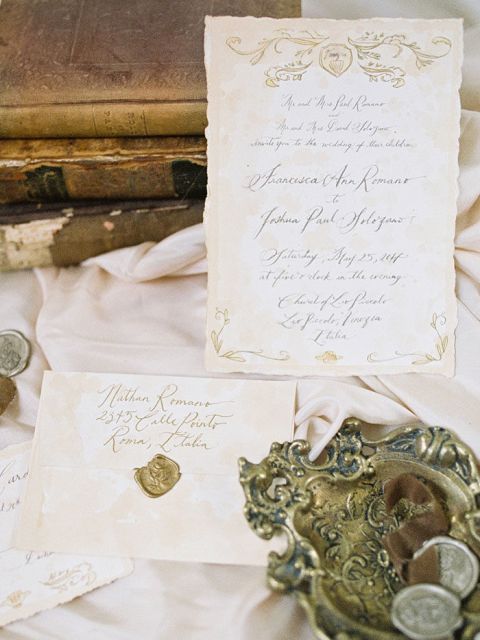 Mr and Mrs Paul Romano
and
Mr and Mrs David Solozano
invite you to the wedding of their children
Francesca Ann Romano
to
Joshua Paul Solozano
Saturday, May 25, 2014
at five o'clock in the evening
Church of Lio Piccolo
Lio Piccolo, Venezia
Italia
Nathan Romano
2345 Calle Pointo
Roma, Italia